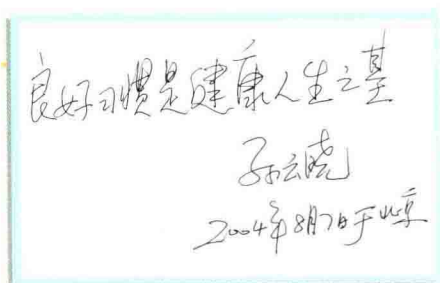 良好习惯是健康人生之基
孙云晓
2004年8月7日于北京